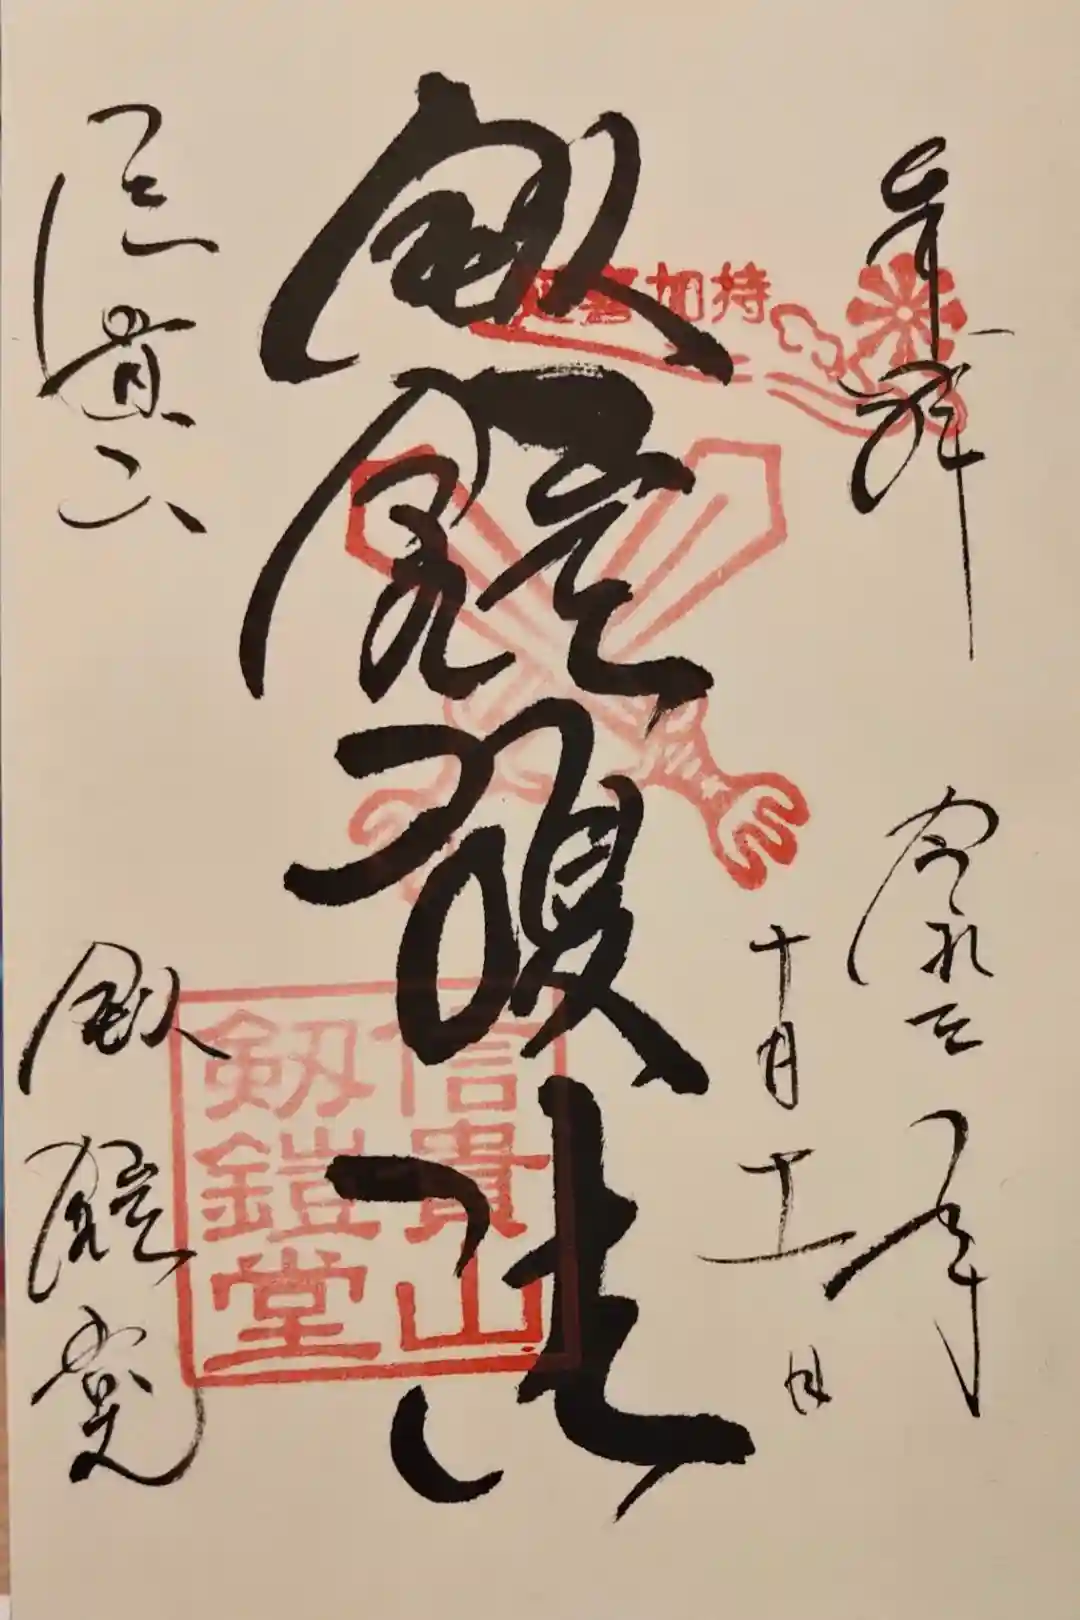 奉拝
令和
年
十月十一日
延喜加持
劔鎧護法
信貴山
劔鎧堂
信貴山
劔鎧堂